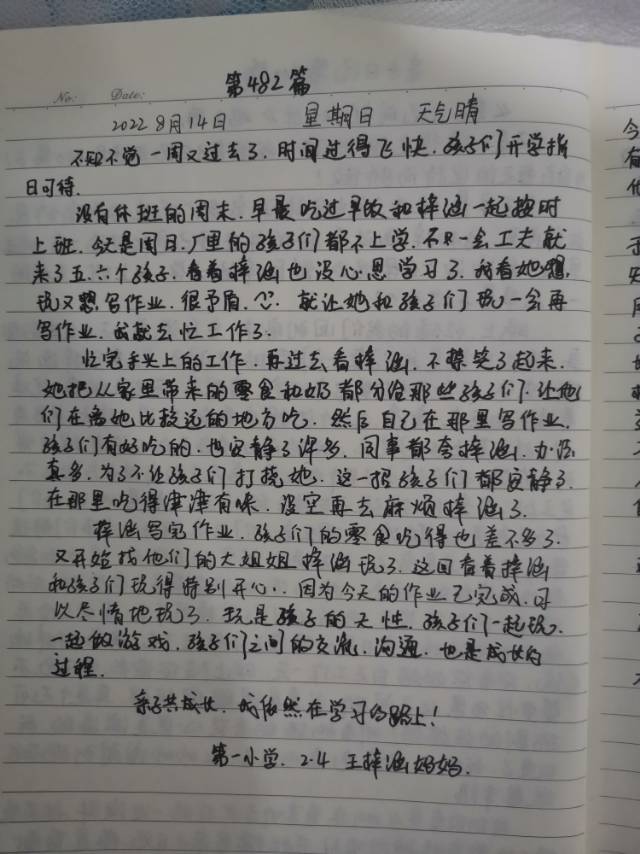 第482篇
No: Date:
2022 8月14日 星期日 天气晴
不知不觉一周又过去了.时间过得飞快.孩子们开学指
日可待.
没有休班的周末.早晨吃过早饭和梓涵一起按时
上班.今天是周日.厂里的孩子们都不上学.不一会工夫就
来了五.六个孩子.看着梓涵也没心思学习了.我看她想
玩又想写作业.很矛盾.就让她和孩子们玩一会再
写作业.我就去忙工作了.
忙完手头上的工作.再过去看梓涵.不禁笑了起来.
她把从家里带来的零食和奶都分给那些孩子们.让他
们在离她比较远的地方吃.然后自己在那里写作业.
孩子们有好吃的.也安静了许多.同事都夸梓涵.办法
真多.为了不让孩子们打扰她.这一招孩子们都安静了.
在那里吃得津津有味.没空再去麻烦梓涵了.
梓涵写完作业.孩子们的零食吃得也差不多了.
又开始找他们的大姐姐梓涵玩了.这回看着梓涵
和孩子们玩得特别开心..因为今天的作业已完成.可
以尽情地玩了.玩是孩子的天性.孩子们一起玩.
一起做游戏.孩子们之间的交流.沟通.也是成长的
过程.
亲子共成长.我依然在学习的路上!
第一小学.2.4 王梓涵妈妈.